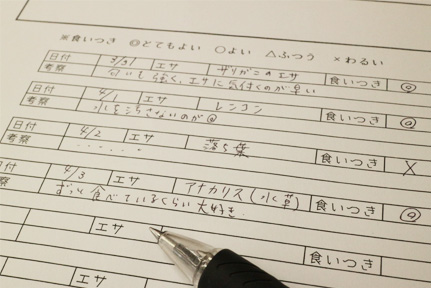 ※食いつき ◎とてもよい ○よい △ふつう ×わるい
日付 3/31 エサ ザリガニのエサ 食いつき ◎
考察 匂いも強く、エサに気付くのが早い
日付 4/1 エサ レンコン 食いつき ◎
考察 水を汚さないのが◎
日付 4/2 エサ 落ち葉 食いつき ×
考察 ・・・・・・
日付 4/3 エサ アナカリス(水草) 食いつき ◎
考察 ずっと食べているくらい大好き
エサ 食いつき
エサ